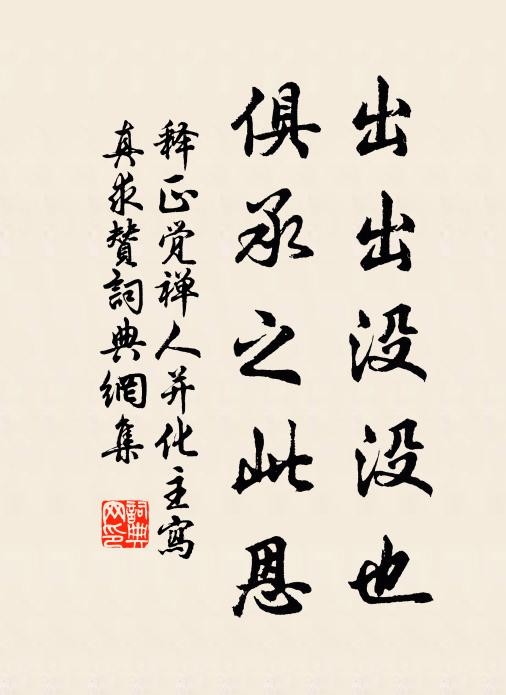 出出没没也
俱承之此恩
释正觉禅人并化主寫
真求贊詞典網集
詞典
网印